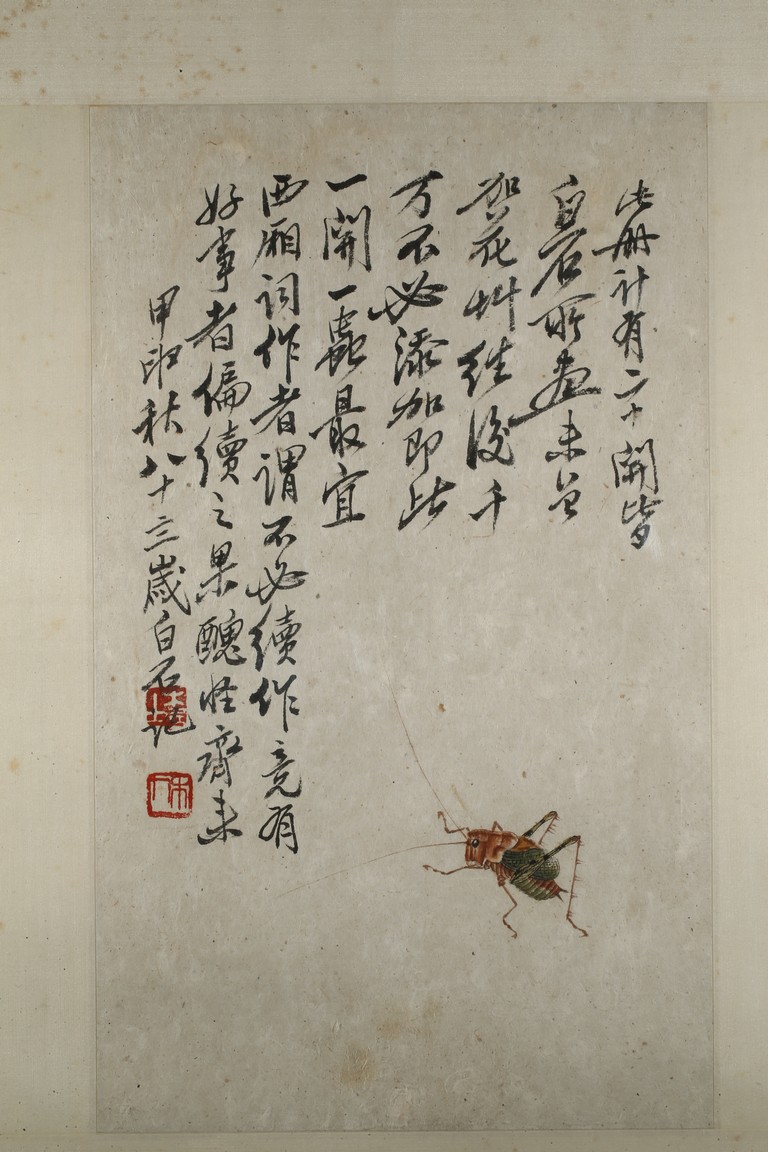 此册計有二十開皆
白石所畫未曾
加花艸往後千
万不必添加即此
一開一蟲最宜
西廂詞作者謂不必續作竟有
好事者偏續之果醜怪齊来
甲申秋八十三歲白石記
木人